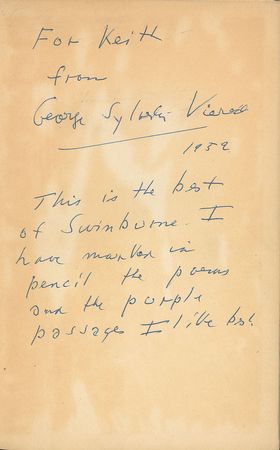 For Keith
from
George Sylvester Viereck
1952
This is the best
of Swinburne. I
have marked in
pencil the poems
and the purple
passages I like best.